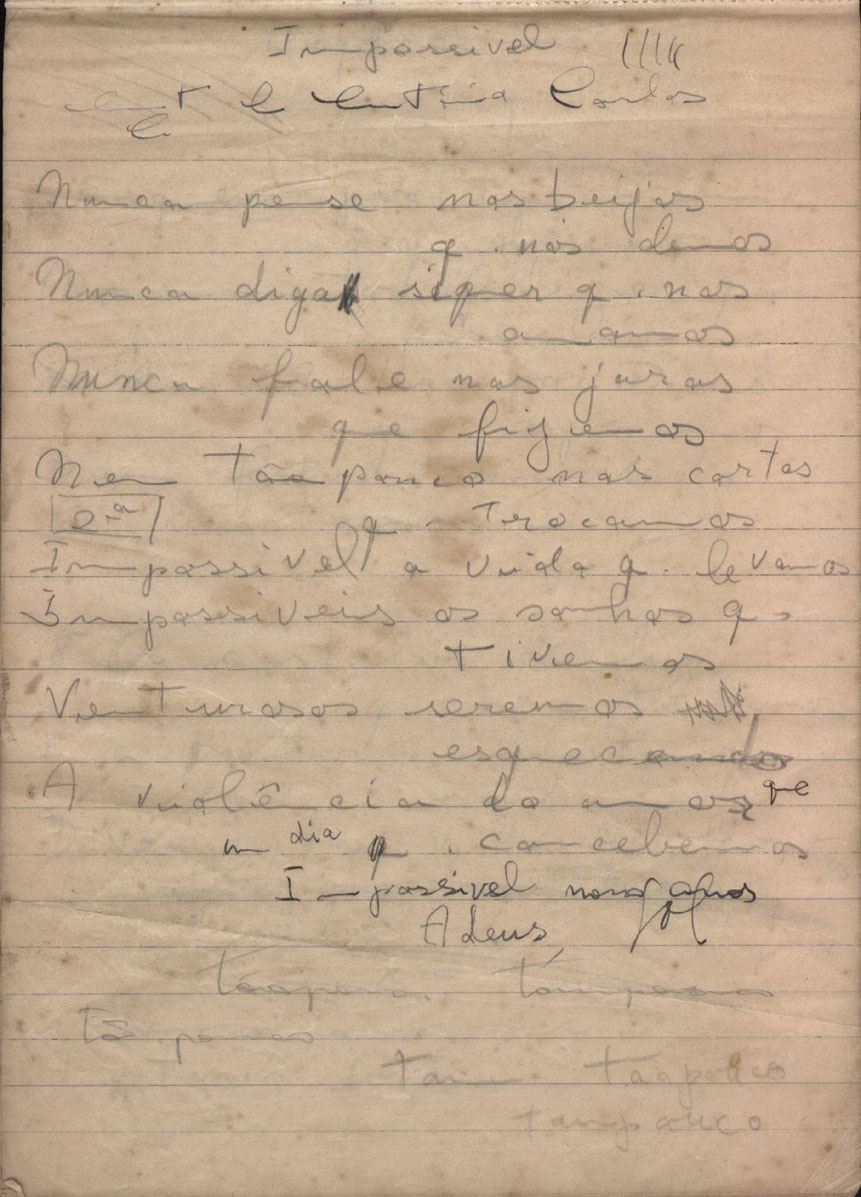 Impossivel
Carlos
Nunca pense nos beijos
q. nós demos
Nunca diga siquer q. nos
amamos
Nunca fale nas juras
que fizemos
Nem tãopouco nas cartas
2ª q. trocamos
Impossivel a vida q. levamos
Impossiveis os sonhos q.
tivemos
Venturosos seremos
esquecendo
A violência do amor que
um dia concebemos
Impossivel
Adeus
Tão pouco
Tam tãopouco
tampouco